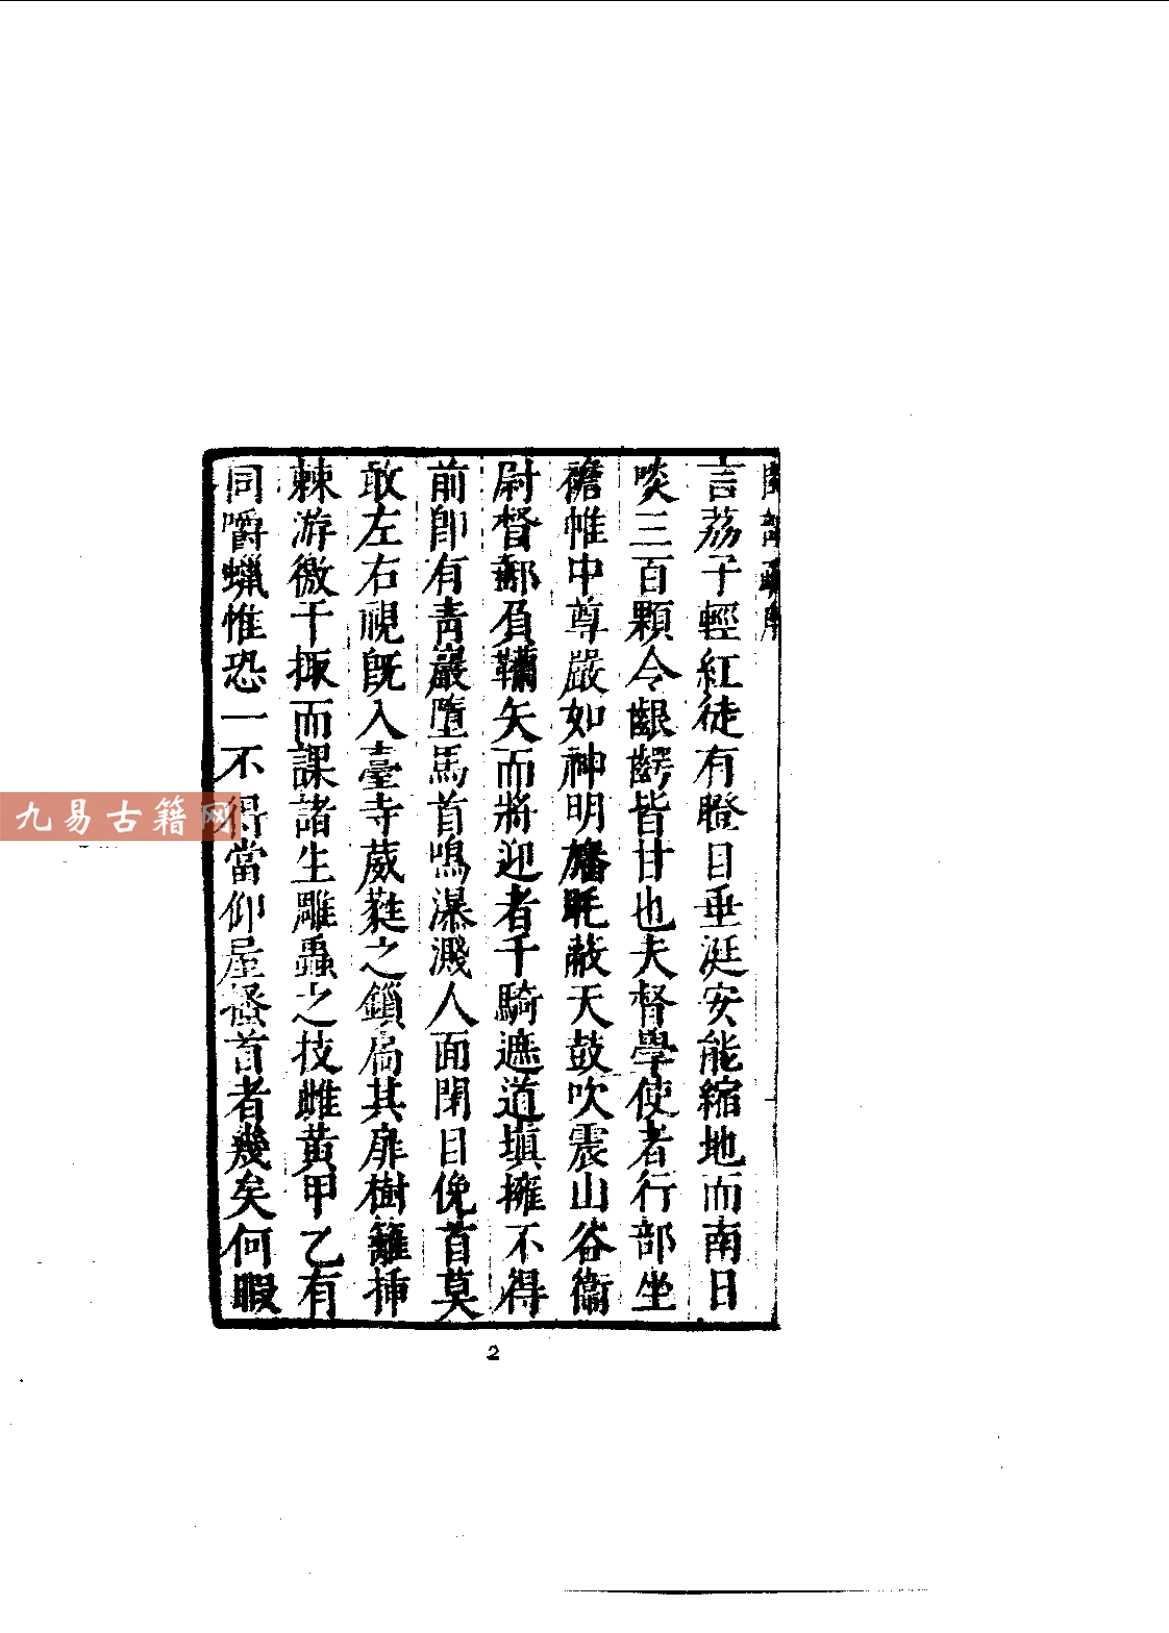 言荔子輕紅徒有瞪目垂涎安能縮地而南日
啖三百顆令齦齶皆甘也夫督學使者行部坐
襜帷中尊嚴如神明旛毦蔽天鼓吹震山谷衞
尉督郵負韊矢而將迎者千騎遮道塡擁不得
前卽有靑巖墮馬首鳴瀑濺人面閉目俛首莫
敢左右視旣入臺寺葳蕤之鎖扃其扉樹籬揷
棘游徼干掫而課諸生雕蟲之技雌黃甲乙有
同嚼蠟惟恐一不得當仰屋搔首者幾矣何暇
2
九易古籍网